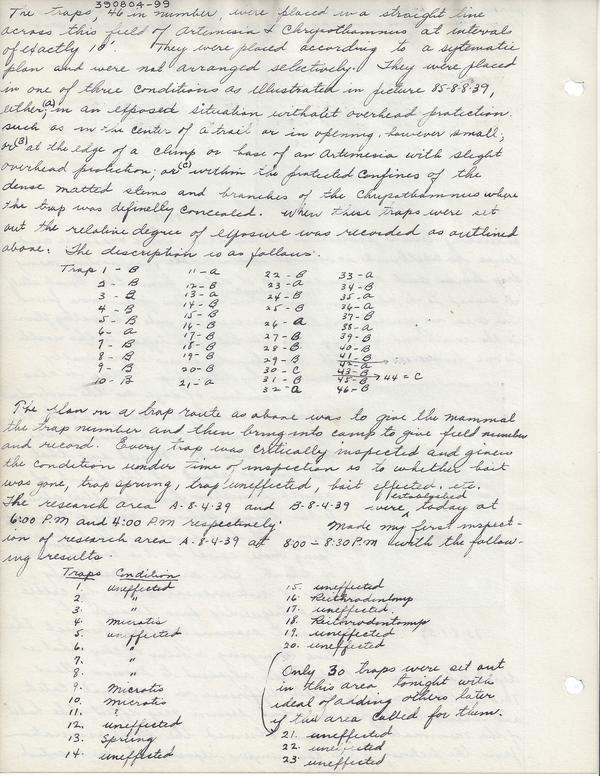 390804-99
The traps, 46 in number, were placed in a straight line
across this field of Artemisia & Chrysothamnus at intervals
of exactly 10'. They were placed according to a systematic
plan and were not arranged selectively. They were placed
in one of three conditions as illustrated in picture 85-8-8-39,
either, (A) in an exposed situation without overhead protection.
such as in the center of a trail or in opening, however small;
or (B) at the edge of a clump or base of an Artemisia with slight
overhead protection; or (C) within the protected confines of the
dense matted stems and branches of the Chrysothamnus where
the trap was definelly concealed. When these traps were set
out the relative degree of exposure was recorded as outlined
above. The description is as follows.
Trap 1 - B 11 - A 22 - B 33 - A
2 - B 12 - B 23 - A 34 - B
3 - B 13 - A 24 - B 35 - A
4 - B 14 - B 25 - B 36 - A
5 - B 15 - B 26 - A 37 - B
6 - A 16 - B 27 - B 38 - A
7 - B 17 - B 28 - B 39 - B
8 - B 18 - B 29 - B 40 - B
9 - B 19 - B 30 - C 41 - B
10 - B 20 - B 31 - B 42 - A
21 - A 32 - A 43 - B
45 - B 44 = C
46 - B
The plan on a trap route as above was to give the mammal
the trap number and then bring into camp to give field number
and record. Every trap was critically inspected and given
the condition under time of inspection is to whether bait
was gone, trap sprung, trap uneffected, bait effected. etc.
The research area A-8-4-39 and B-8-4-39 were established today at
6:00 P.M and 4:00 P.M respectively. Made my first inspect-
ion of research area A-8-4-39 at 8:00 - 8:30 P.M with the follow-
ing results.
Traps Condition
1. uneffected
2. "
3. "
4. Microtis
5. uneffected
6. "
7. "
8. "
9. Microtis
10. Microtis
11.
12. uneffected
13. Sprung
14. uneffected
15. uneffected
16. Reithrodintomp
17. uneffected.
18. Reithrodontomp
19. uneffected
20. uneffected
(Only 30 traps were set out
in this area tonight with
ideal of adding others later
if the area called for them.
21. uneffected
22. uneffected
23 uneffected